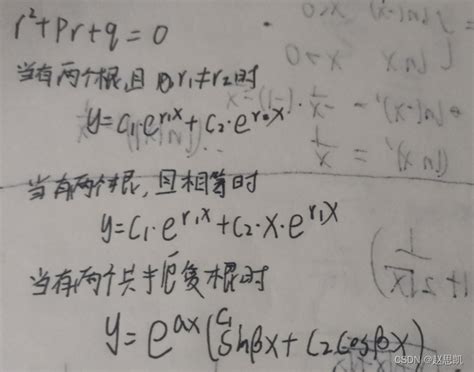 r²+pr+q=0
当有两个根且 r₁≠r₂时
y=C₁·e^{r₁x}+C₂·e^{r₂x}
当有两个根,且相等时
y=C₁·e^{r₁x}+C₂·x·e^{r₁x}
当有两个共轭复根时
y=e^{αx}(C₁sinβx+C₂cosβx)
CSDN @赵思凯